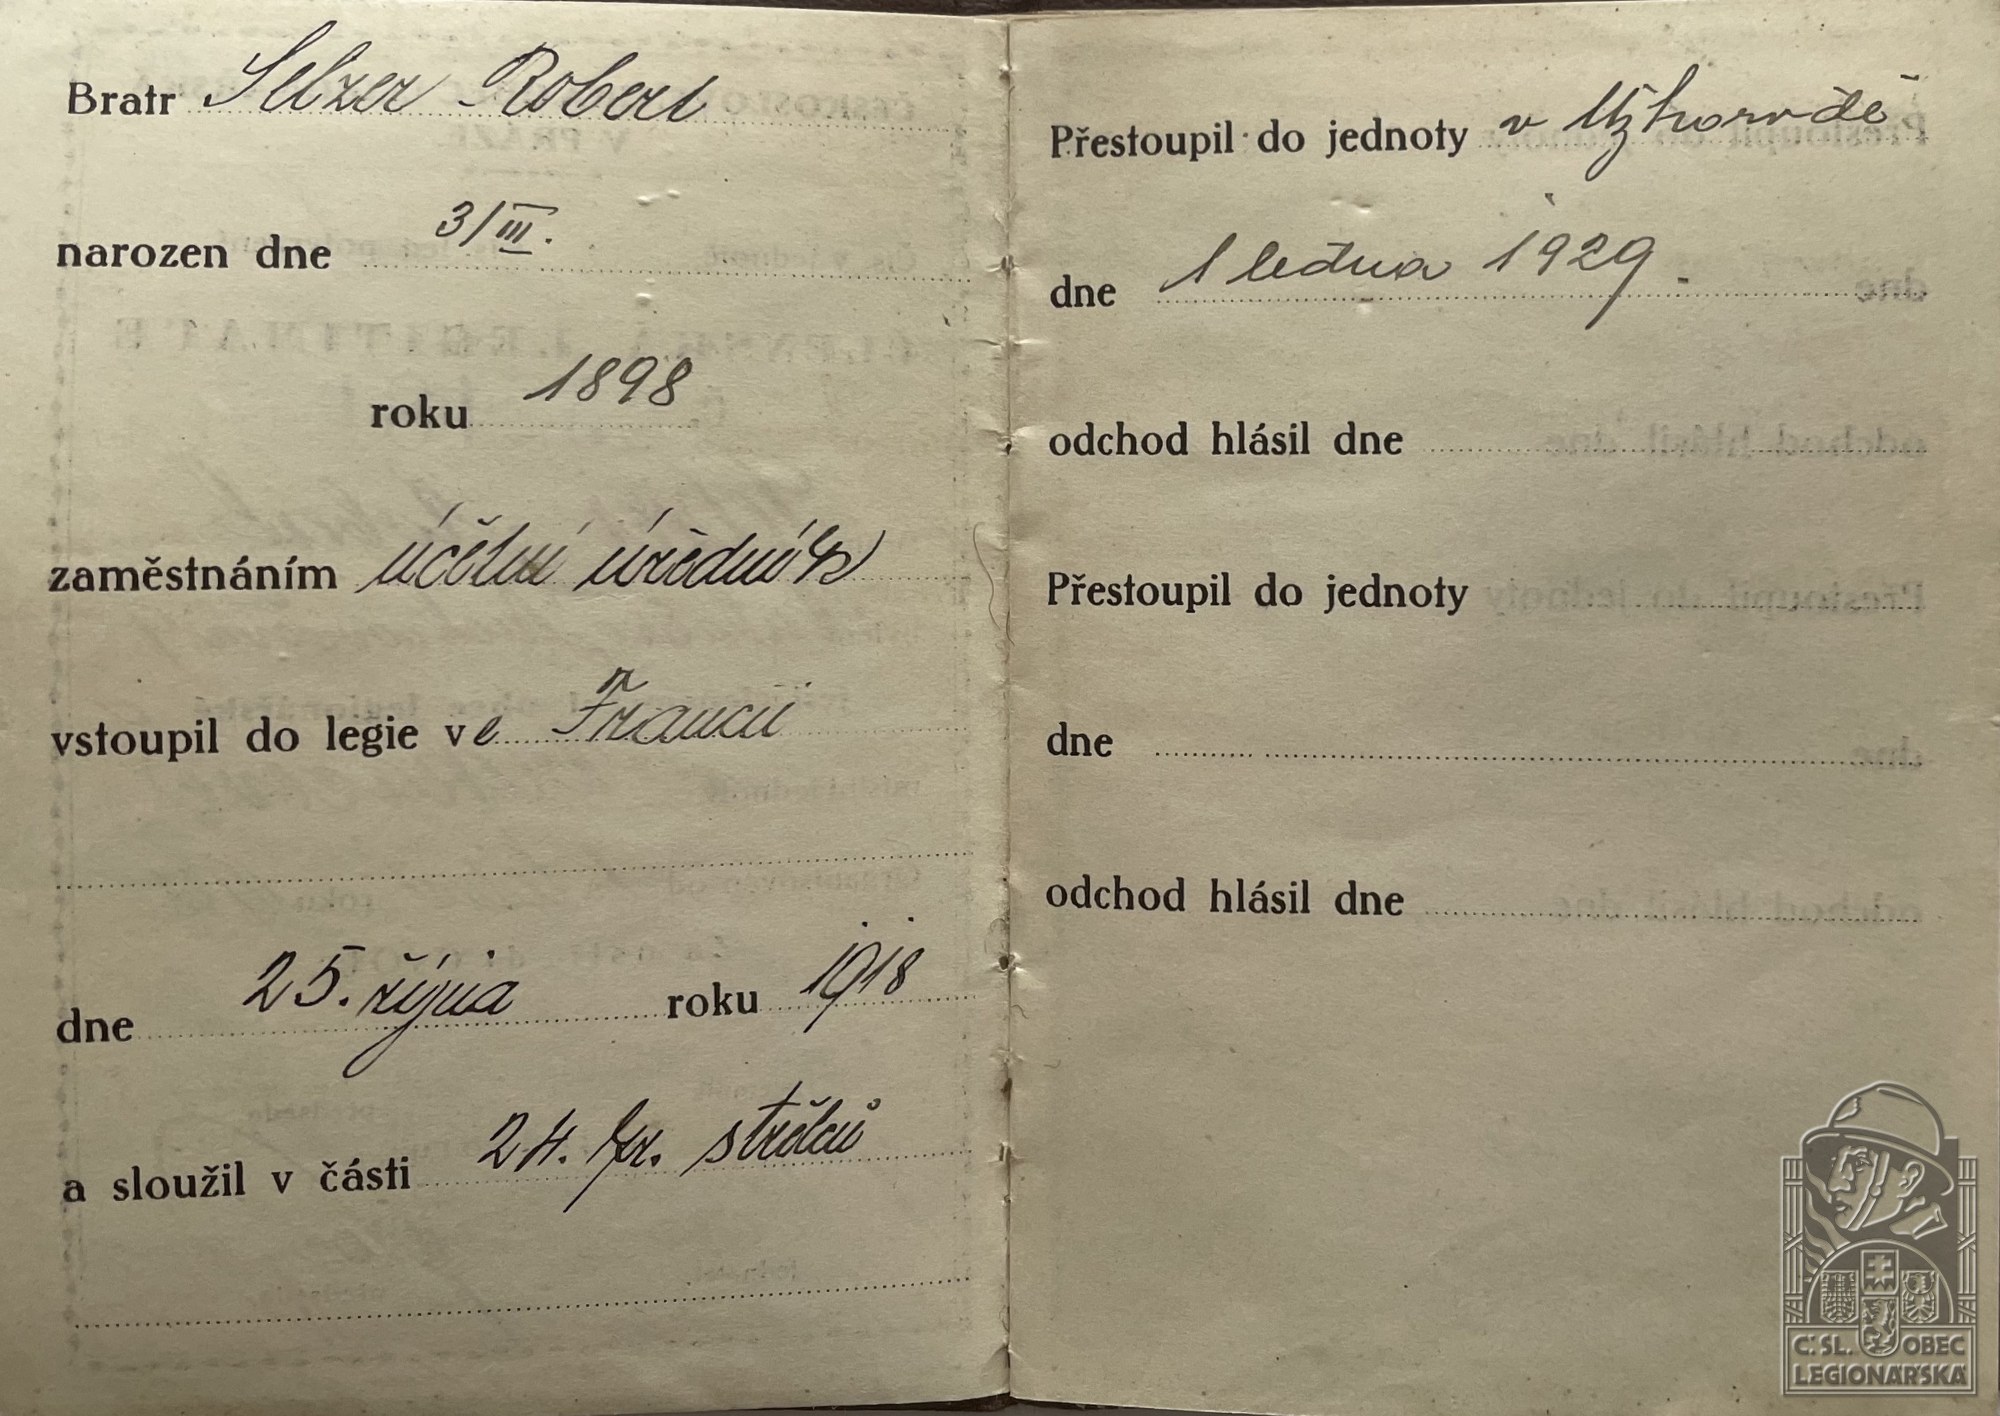 Bratr Selzer Robert
narozen dne 3/III.
roku 1898
zaměstnáním účetní úředník
vstoupil do legie ve Francii
dne 25. října roku 1918
a sloužil v části 24. fr. střelců
Přestoupil do jednoty v Užhorodě
dne 1 ledna 1929
odchod hlásil dne
Přestoupil do jednoty
dne
odchod hlásil dne
Č.SL. OBEC
LEGIONÁŘSKÁ